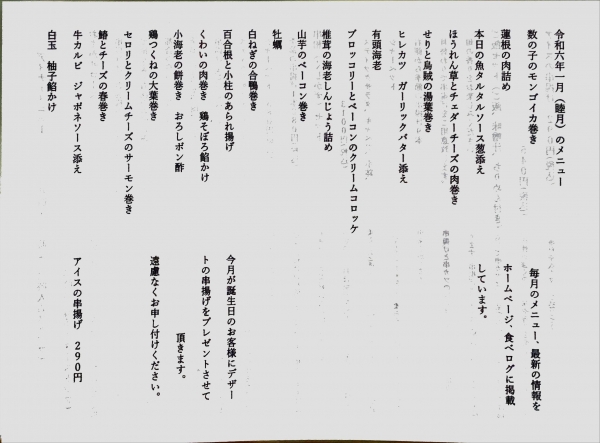 令和六年一月（睦月）のメニュー
数の子のモンゴイカ巻き
蓮根の肉詰め
本日の魚タルタルソース葱添え
ほうれん草とチェダーチーズの肉巻き
せりと烏賊の湯葉巻き
ヒレカツ　ガーリックバター添え
有頭海老
ブロッコリーとベーコンのクリームコロッケ
椎茸の海老しんじょう詰め
山芋のベーコン巻き
牡蠣
白ねぎの合鴨巻き
百合根と小柱のあられ揚げ
くわいの肉巻き　鶏そぼろ餡かけ
小海老の餅巻き　おろしポン酢
鶏つくねの大葉巻き
セロリとクリームチーズのサーモン巻き
鰆とチーズの春巻き
牛カルビ　ジャポネソース添え
白玉　柚子餡かけ
毎月のメニュー、最新の情報を
ホームページ、食べログに掲載
しています。
今月が誕生日のお客様にデザー
トの串揚げをプレゼントさせて
頂きます。
遠慮なくお申し付けください。
アイスの串揚げ　290円